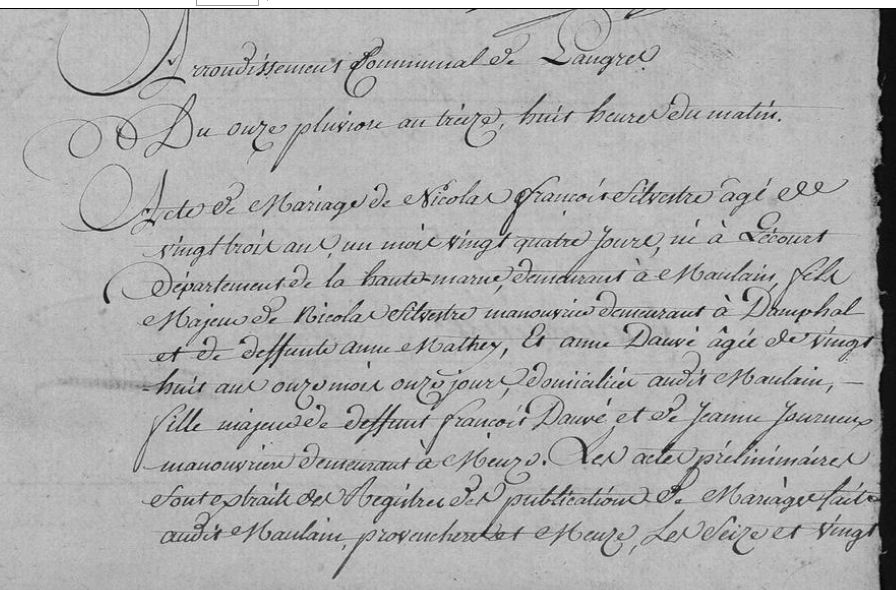 Arrondissement Communal de Langres
Du onze pluviose an treize, huit heures du matin.
Acte de Mariage de Nicolas françois Silvestre âgé de
vingt trois ans, un mois vingt quatre Jours, né à Lécourt
Département de la haute-marne, demeurant à Maulain, fils
Majeur de Nicolas Silvestre manouvrier demeurant à Damphal
et de deffunte anne Mathey, Et anne Dauvé âgée de vingt
huit ans onze mois onze jours, domiciliée audit Maulain, —
fille majeure de deffunt françois Dauvé et de Jeanne Journeux
manouvriere demeurant à Meuze. Les actes préliminaires
sont extraits des Registres des publications de Mariages faites
audit Maulain, provencheres et Meuze, Les Seize et vingt